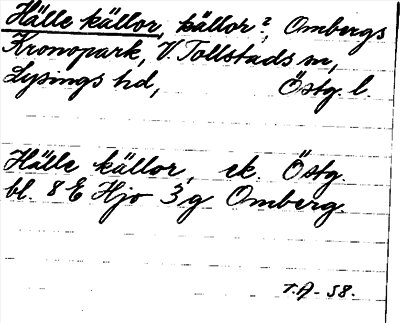 Hälle källor, källor?, Ombergs
Kronopark, V. Tollstads sn,
Lysings hd, Östg. l.
Hälle källor, ek. Östg.
bl. 8 E Hjo 3 g Omberg.
T.A- 58.